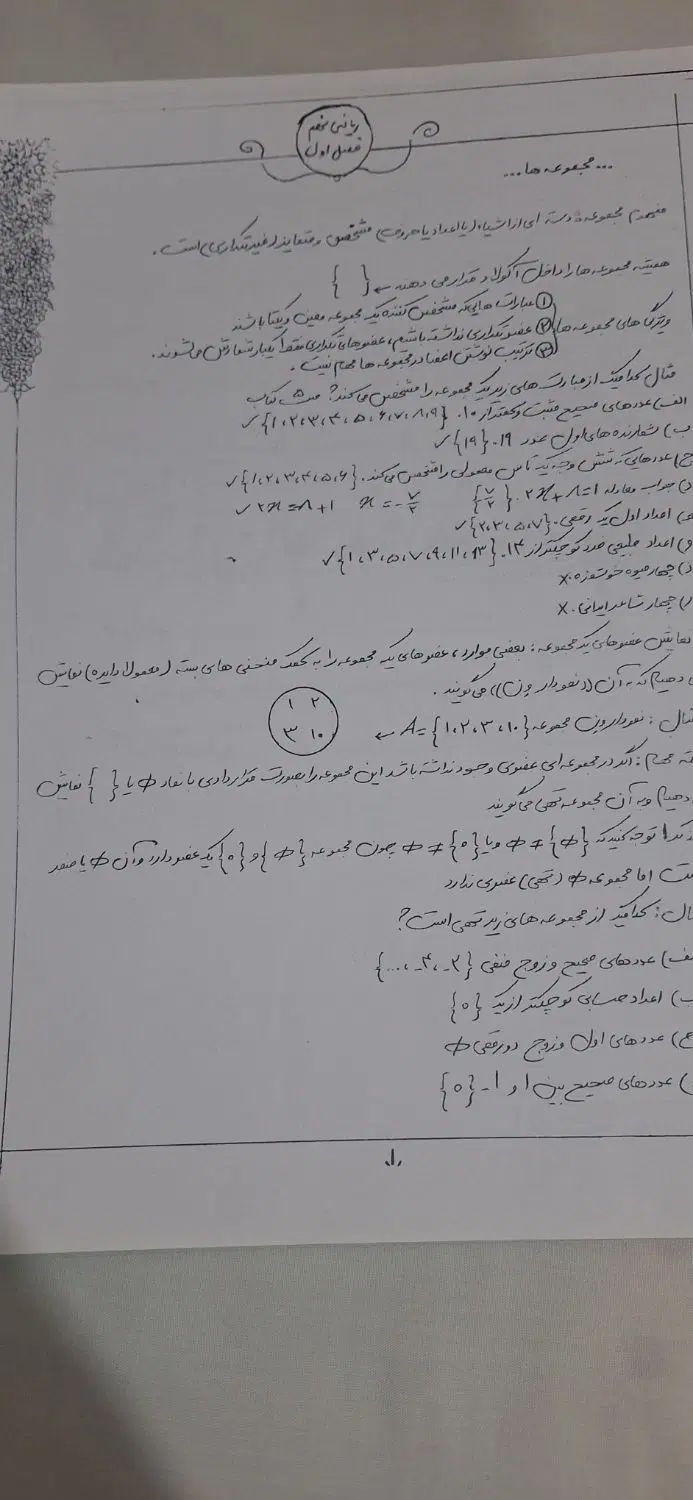 ریاضی نهم
فصل اول
... مجموعه ها ...
مفهوم مجموعه: دسته ای از اشیاء (یا اعداد یا حروف) مشخص و متمایز (غیرتکراری) است.
همیشه مجموعه ها را داخل آکولاد قرار می دهند ← { }
① عبارت هایی که مشخص کننده یک مجموعه معین و یکتا باشند
ویژگی های مجموعه ها ② عضو تکراری نداشته باشیم، عضوهای تکراری فقط یکبار شمارش می شوند.
③ ترتیب نوشتن اعضا در مجموعه ها مهم نیست.
مثال کدامیک از عبارت های زیر یک مجموعه را مشخص می کند؟ ص۵ کتاب
الف) عددهای صحیح مثبت و کمتر از ۱۰. {۱،۲،۳،۴،۵،۶،۷،۸،۹} ✓
ب) شمارنده های اول عدد ۱۹. {۱۹} ✓
ج) عددهایی که شش وجه یک تاس معمولی را مشخص می کند. {۱،۲،۳،۴،۵،۶} ✓
د) جواب معادله ۲x+۸=۱. {۷/۲} ۲x=۸+۱ x=-۷/۲ ✓
اعداد اول یک رقمی. {۲،۳،۵،۷} ✓
و) اعداد طبیعی فرد کوچکتر از ۱۴. {۱،۳،۵،۷،۹،۱۱،۱۳} ✓
چهار میوه خوشمزه. ×
چهار شاعر ایرانی. ×
نمایش عضوهای یک مجموعه: بعضی موارد، عضوهای یک مجموعه را به کمک منحنی های بسته (معمولا دایره) نمایش
دهیم که به آن ((نمودار ون)) می گویند.
مثال: نمودار ون مجموعه A={۱،۲،۳،۱۰} ←
۱ ۲
۳ ۱۰
مهم: اگر در مجموعه ای عضوی وجود نداشته باشد این مجموعه را بصورت قراردادی با نماد ϕ یا { } نمایش
دهیم و به آن مجموعه تهی می گویند
توجه کنید که {ϕ}≠ϕ و یا {۰}≠ϕ چون مجموعه {ϕ} و {۰} یک عضو دارد و آن ϕ یا صفر
است اما مجموعه ϕ (تهی) عضوی ندارد
مثال: کدامیک از مجموعه های زیر تهی است؟
الف) عددهای صحیح و زوج منفی {-۲،-۴،...}
ب) اعداد حسابی کوچکتر از یک {۰}
ج) عددهای اول و زوج دورقمی ϕ
عددهای صحیح بین ۱ و ۱- {۰}
۱